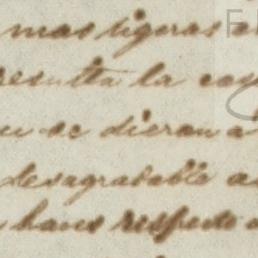 mas ligeras
resulta la cos
se dieran a
desagradable a
haus respecto